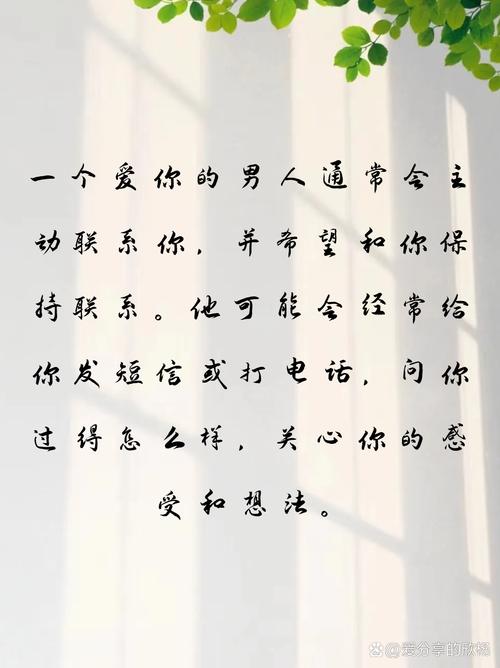 一个爱你的男人通常会主
动联系你，并希望和你保
持联系。他可能会经常给
你发短信或打电话，问你
过得怎么样，关心你的感
受和想法。
爱分享的欣杨